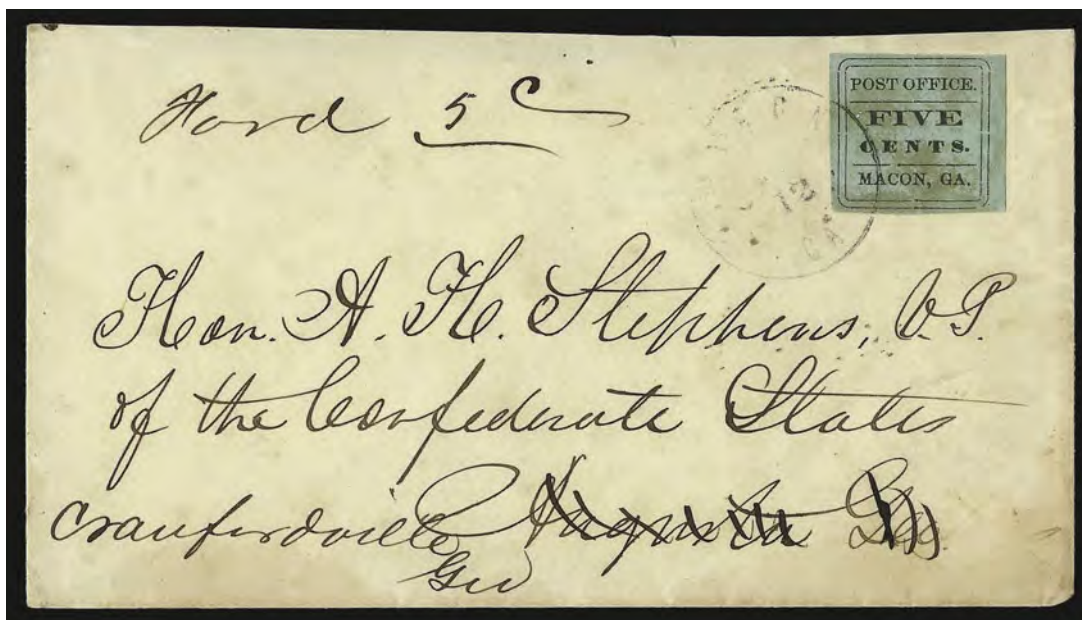 Forwd 5 C
POST OFFICE.
FIVE
CENTS.
MACON, GA.
12
GA
Hon. A. H. Stephens, V. P.
of the Confederate States
Crawfordville Augusta Geo
Geo